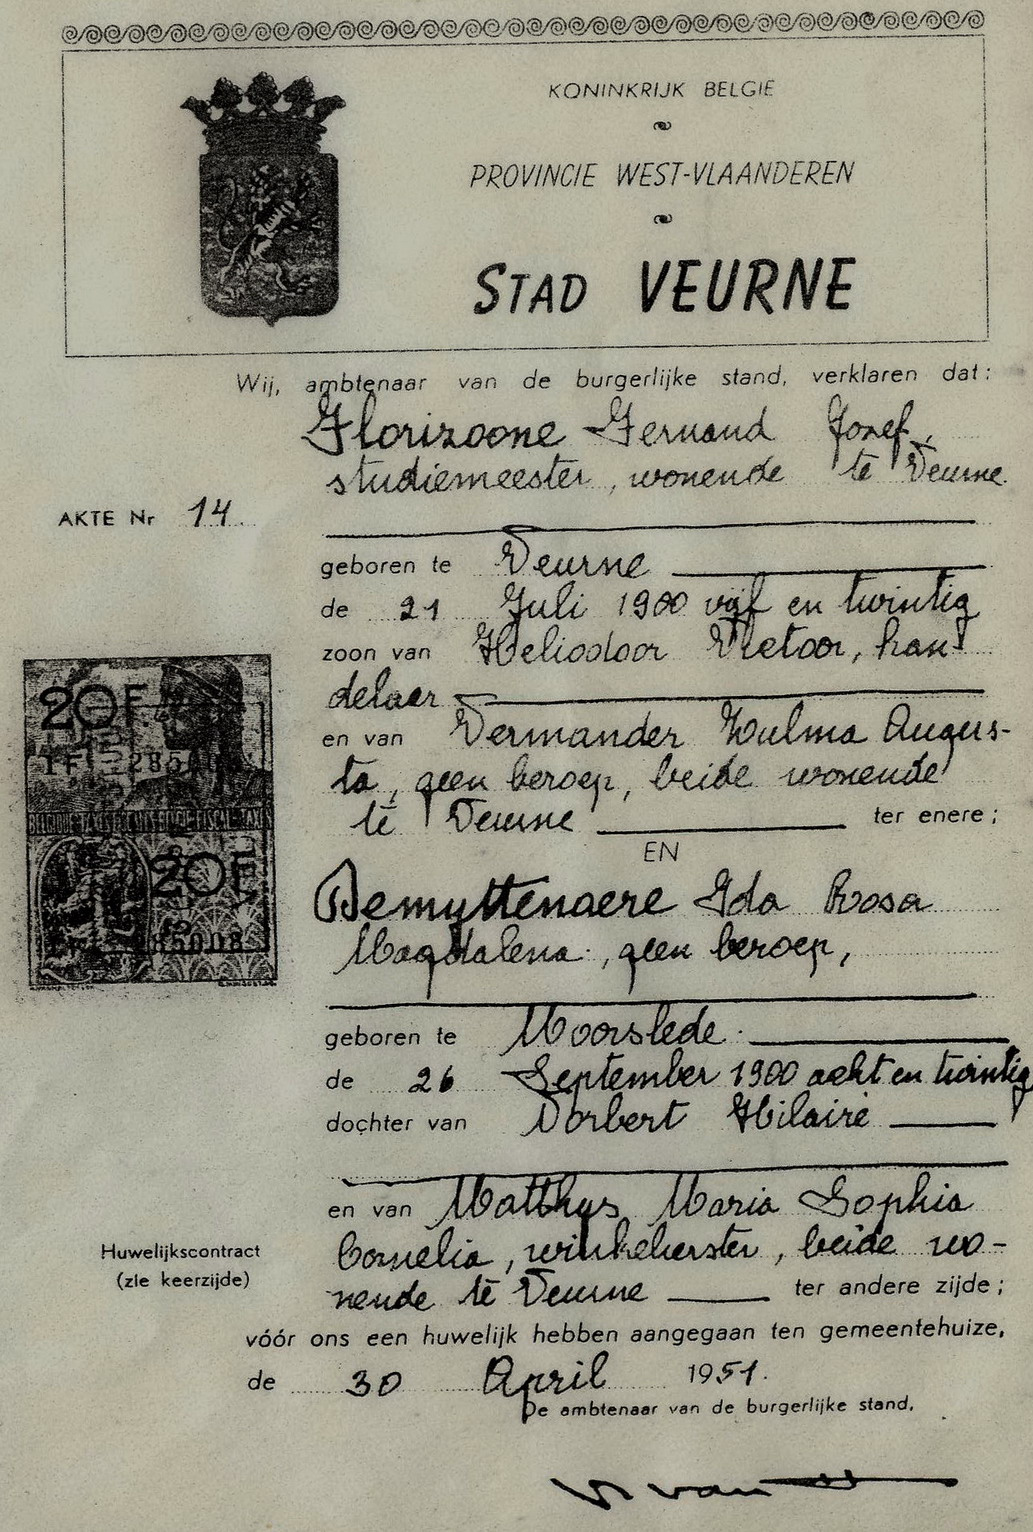 KONINKRIJK BELGIE
PROVINCIE WEST-VLAANDEREN
STAD VEURNE
Wij, ambtenaar van de burgerlijke stand, verklaren dat:
Florizoone Fernand Jozef,
studiemeester, wonende te Veurne
AKTE Nr 14
geboren te Veurne
de 21 Juli 1900 vijf en twintig
zoon van Heliodoor Victoor, han-
delaer
en van Vermander Zulma Augus-
ta, geen beroep, beide wonende
te Veurne ter enere;
EN
Demyttenaere Ida Rosa
Magdalena, geen beroep,
geboren te Moorslede
de 26 September 1900 acht en twintig
dochter van Norbert Hilaire
en van Matthys Maria Sophia
Cornelia, winkelierster, beide wo-
nende te Veurne ter andere zijde;
Huwelijkscontract
(zie keerzijde)
vóór ons een huwelijk hebben aangegaan ten gemeentehuize,
de 30 April 1951.
De ambtenaar van de burgerlijke stand,
20F
20F
285008